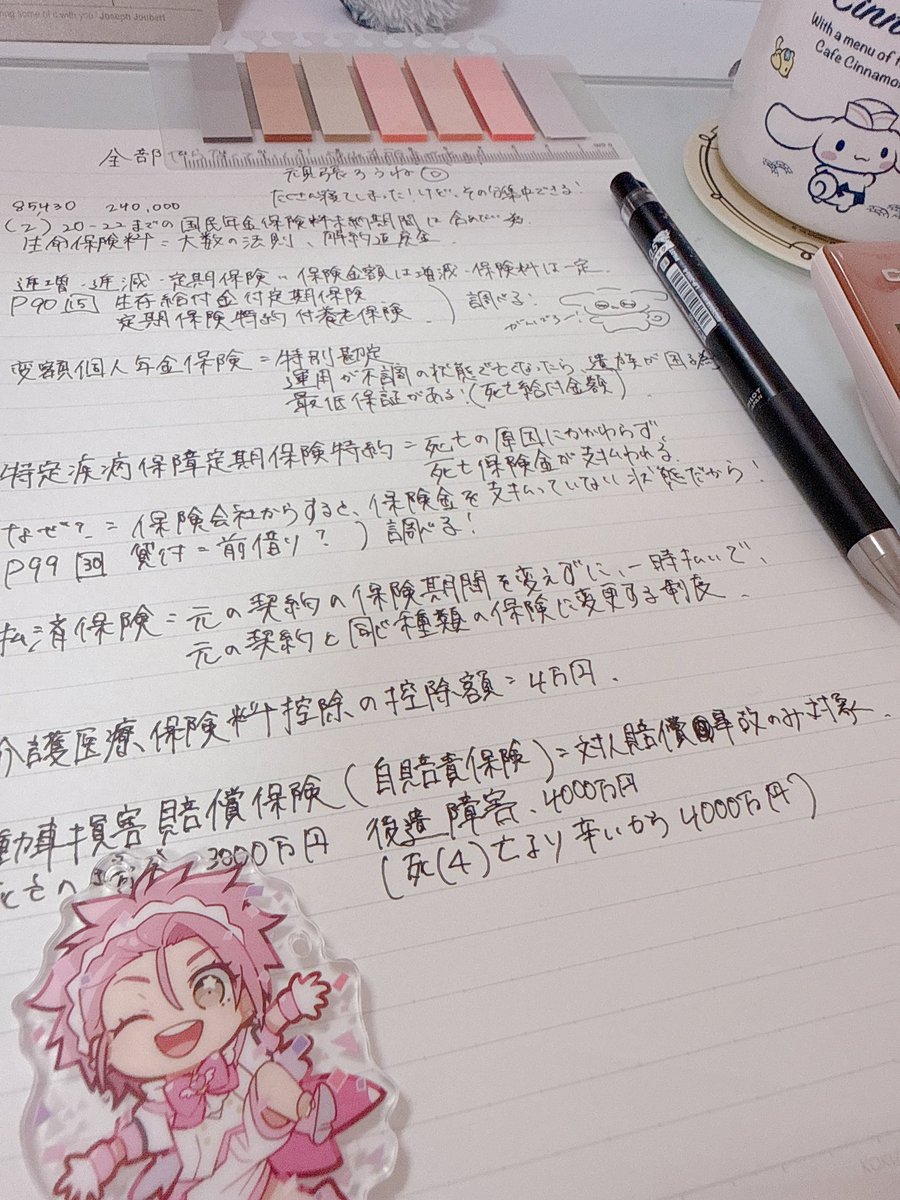 ring some of it with you" Joseph Joubert
Cinna
With a menu of
Cafe Cinnamo
全部
頑張ろうね
たくさん寝てしまった!けど、その分集中できる!
85,430 240,000
(2) 20-22までの国民年金保険料未納期間は
生命保険料=大数の法則、解約返戻金
逓増・逓減・定期保険 保険金額は増減・保険料は一定.
P90 15 生存給付金付定期保険
定期保険特約付養老保険 ) 調べる!
がんばるぞー!
変額個人年金保険=特別勘定
運用が不調の状態で亡くなったら、遺族が困る為
最低保証がある!(死亡給付金額)
特定疾病保障定期保険特約=死亡の原因にかかわらず、
死亡保険金が支払われる.
なぜ?=保険会社からすると、保険金を支払っていない状態だから!
P99 30 貸付=前借り? ) 調べる!
払済保険=元の契約の保険期間を変えずに、一時払いで、
元の契約と同じ種類の保険に変更する制度.
介護医療保険料控除の控除額=4万円.
動車損害賠償保険(自賠責保険)=対人賠償事故のみ対象.
3000万円 後遺障害、4000万円
(死(4)亡より辛いから4000万円?)